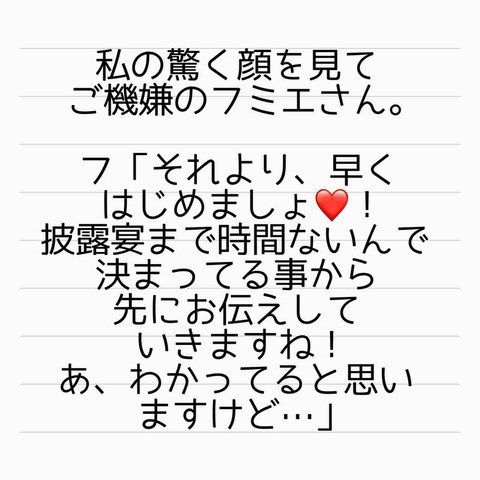 私の驚く顔を見て
ご機嫌のフミエさん。
フ「それより、早く
はじめましょ❤️！
披露宴まで時間ないんで
決まってる事から
先にお伝えして
いきますね！
あ、わかってると思い
ますけど…」